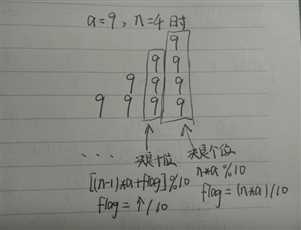 a=9, n=4时
9
9 9
9 9 9
9 9 9 9
... 决定十位 决定个位
[(n-1)*a+flag]%10 n*a%10
flag=↑/10 flag=(n*a)/10